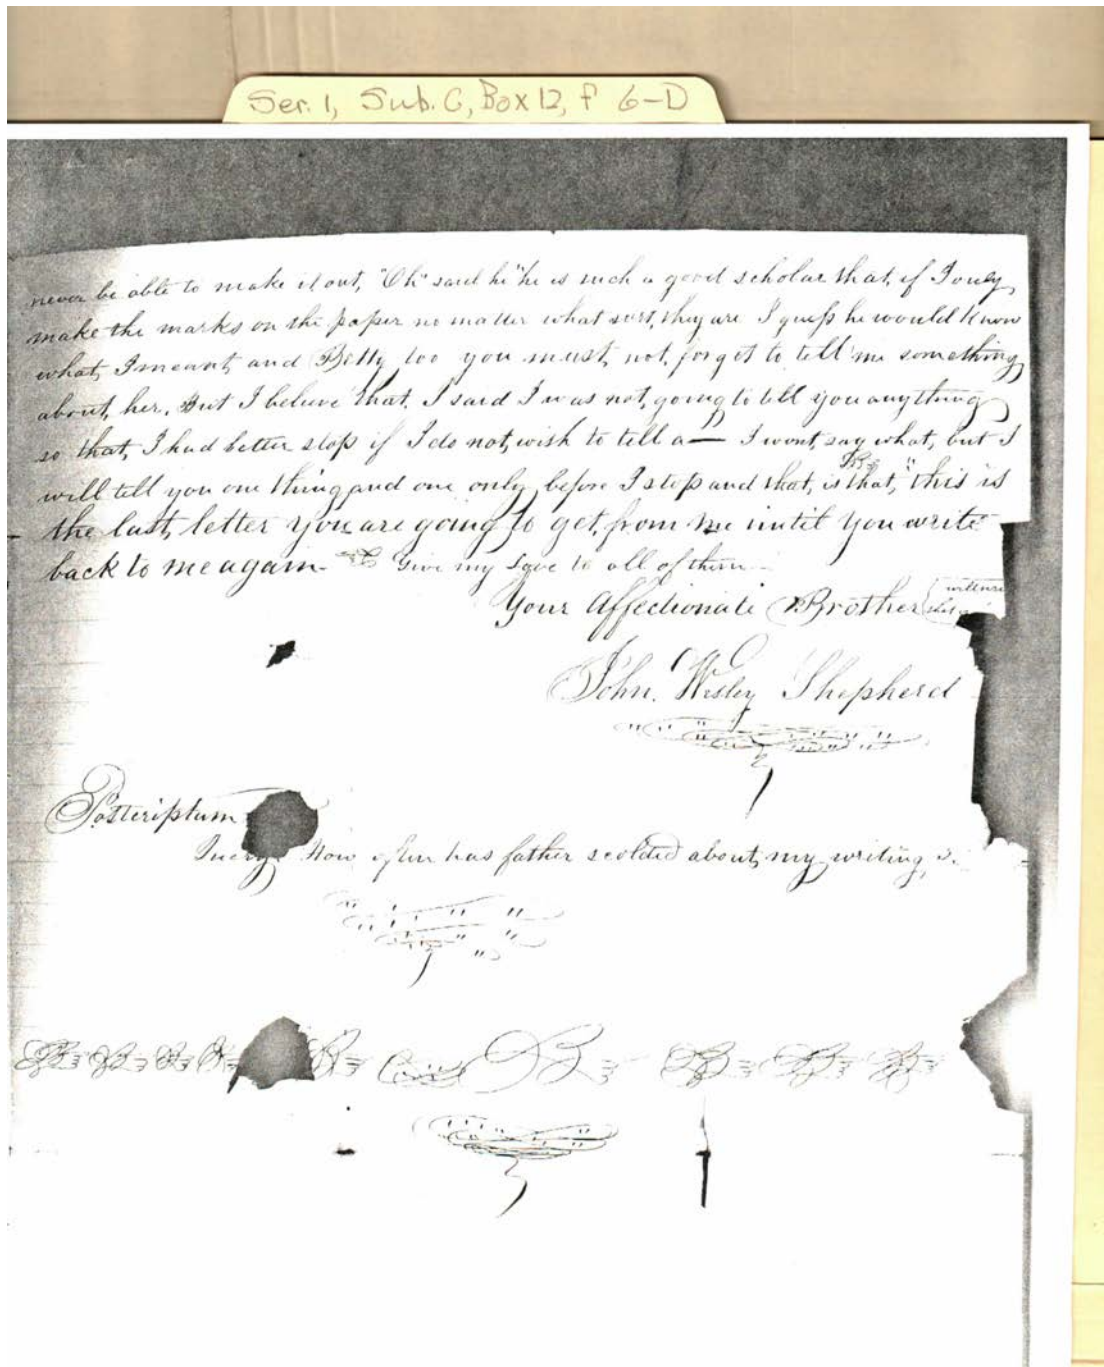 Ser. 1, Sub. C, Box 12, f 6-D
never be able to make it out, "Oh" said he "he is such a good scholar that, if I only
make the marks on the paper no matter what sort, they are I guess he would know
what, I meant, and Betty too you must, not, forget to tell me something
about, her. But I believe that, I said I was not, going to tell you anything
so that, I had better stop if I do not, wish to tell a — I wont, say what, but I
will tell you one thing and one only, before I stop and that, is that, "this is
the last, letter you are going to get, from me until you write
back to me again. Give my Love to all of them
Your Affectionate Brother
John. Wesley Shepherd
Postcriptum
How often has father scolded about, my writing,